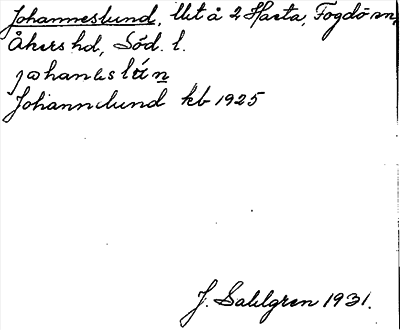 Johanneslund, llet å 2 Harta, Fogdö sn,
Åkers hd, Söd. l.
johanəslún
Johannelund kb 1925
J. Sahlgren 1931.